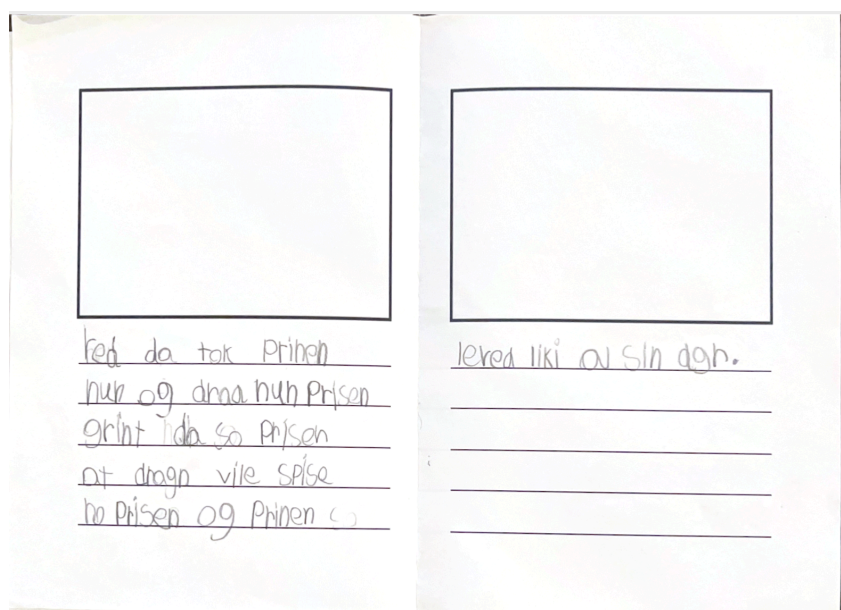 red da tok prinen
nun og drna nun Prisen
grint da so prisen
at dragn vile spise
ho Prisen og Prinen so
leved liki av sin dgn.